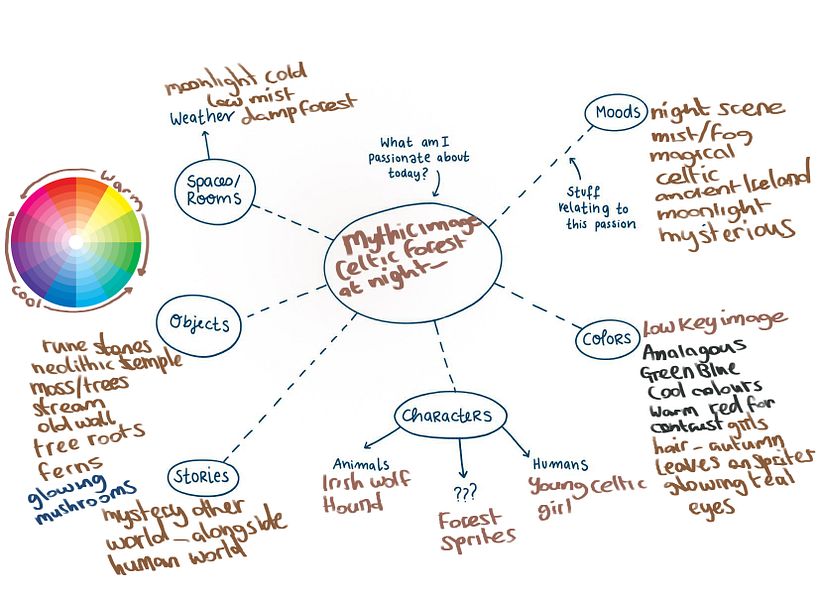 moonlight cold
low mist
Weather damp forest
Spaces/
Rooms
What am I
passionate about
today?
Moods
night scene
mist/fog
magical
celtic
ancient Iceland
moonlight
mysterious
Stuff
relating to
this passion
Warm
Cool
Mythic image
Celtic forest
at night—
Objects
rune stones
neolithic temple
moss/trees
stream
old wall
tree roots
ferns
glowing
mushrooms
Colors
Low Key image
Analagous
Green Blue
Cool colours
Warm red for
contrast girls
hair - autumn
leaves on sprites
glowing teal
eyes
Characters
Animals
Irish wolf
Hound
???
Forest
Sprites
Humans
Young Celtic
girl
Stories
mystery other
world - alongside
human world